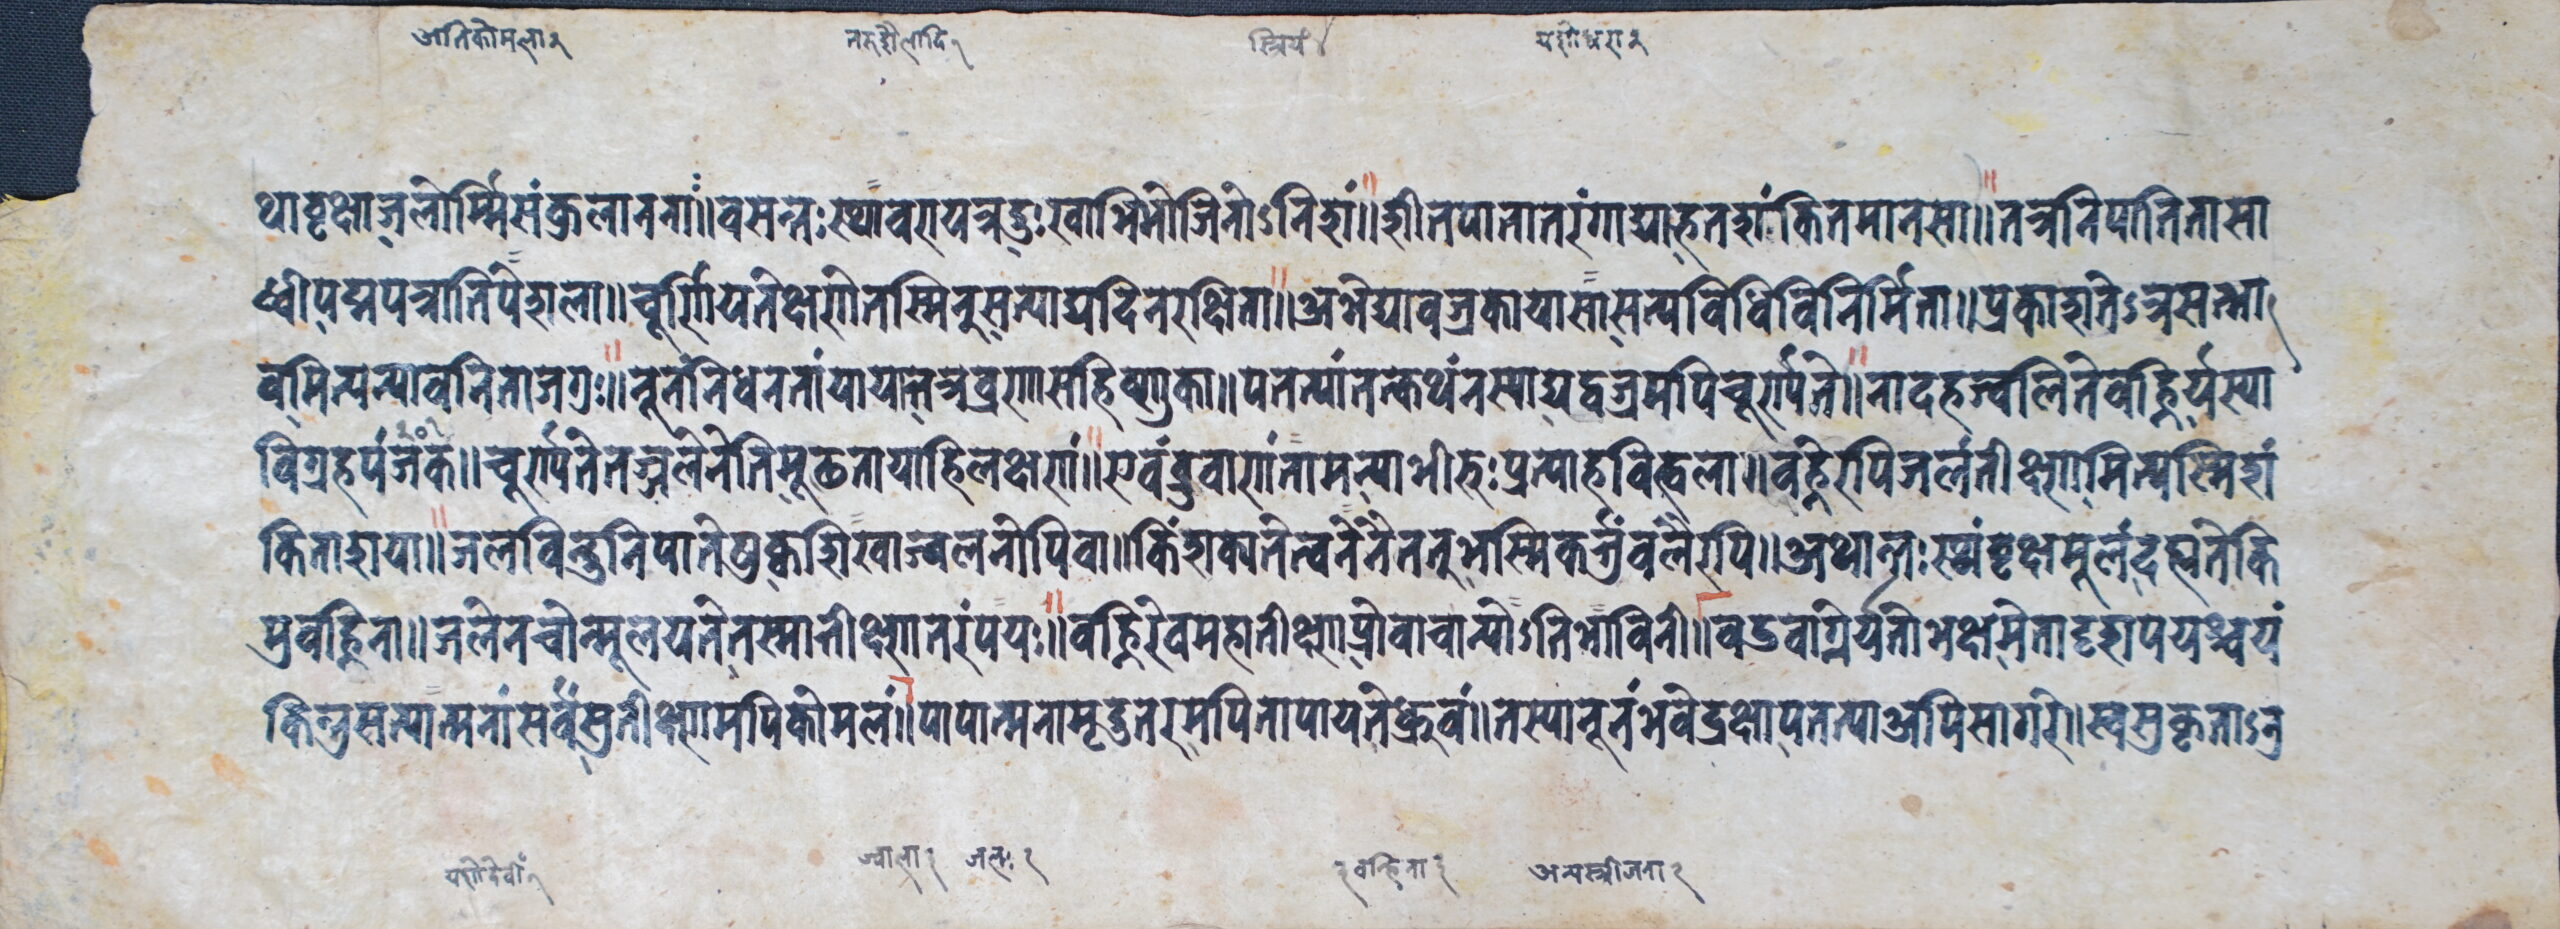 अतिकोमला २ तरुशैलादि १ स्त्रियं ४ यशोधरा २
थावृक्षाजलोर्म्मिसंकुलाननाः॥वसन्तःस्थावरायत्रदुःखाभिभोजिनोऽनिशं॥शीतपानातरंगाद्याहृतशंकितमानसा॥तत्रनिपातितासा
ध्वीपद्मपत्रातिपेशला॥चूर्णीयतेक्षणेतस्मिन्सत्याद्यदिनरक्षिता॥अभेद्यावज्रकायासासत्यविधिविनिर्मिता॥प्रकाशतेऽत्रसत्भा
वमित्यन्यावनिताजगुः॥नूनंनिधनतांयायात्तत्रव्रणासहिष्णुका॥पतत्यांतत्कथंनस्याद्यद्वज्रमपिचूर्णपते॥नादहज्ज्वलितेवह्निर्यस्या
विग्रहपंजकं॥चूर्णपतेतज्जलेनेतिमूढतायाहिलक्षणं॥एवंब्रुवाणांतामन्याभीरुःप्रत्याहविह्वला॥वह्नेरपिजलंतीक्ष्णमित्यस्मिशं
किताशया॥जलविन्दुनिपातेषुक्वशिखाज्वलनोपिवा॥किंशक्यतेत्वनेनैतनुभस्मिकर्त्तुंवलैरपि॥अथान्तःस्थंवृक्षमूलंदह्यतेकि
मुवह्निना॥जलेनचोन्मूलयतेतस्मातीक्ष्णतरंपयः॥वह्निरेवमहातीक्ष्णप्रोवाचान्योऽतिभाविनी॥वडवाग्नेर्यतोभक्षमेतादृशपयश्चयं
किन्तुसत्यात्मनांसर्वंसुतीक्ष्णमपिकोमलं॥पापात्मनामृदुतरमपितापायतेध्रुवं॥तस्यानूनंभवेद्रक्षापतत्याअपिसागरे॥स्वसुकृताऽनु
यशोदेवीं १ ज्वाला १ जलः १ वन्हिना १ अन्यस्त्रीजना १